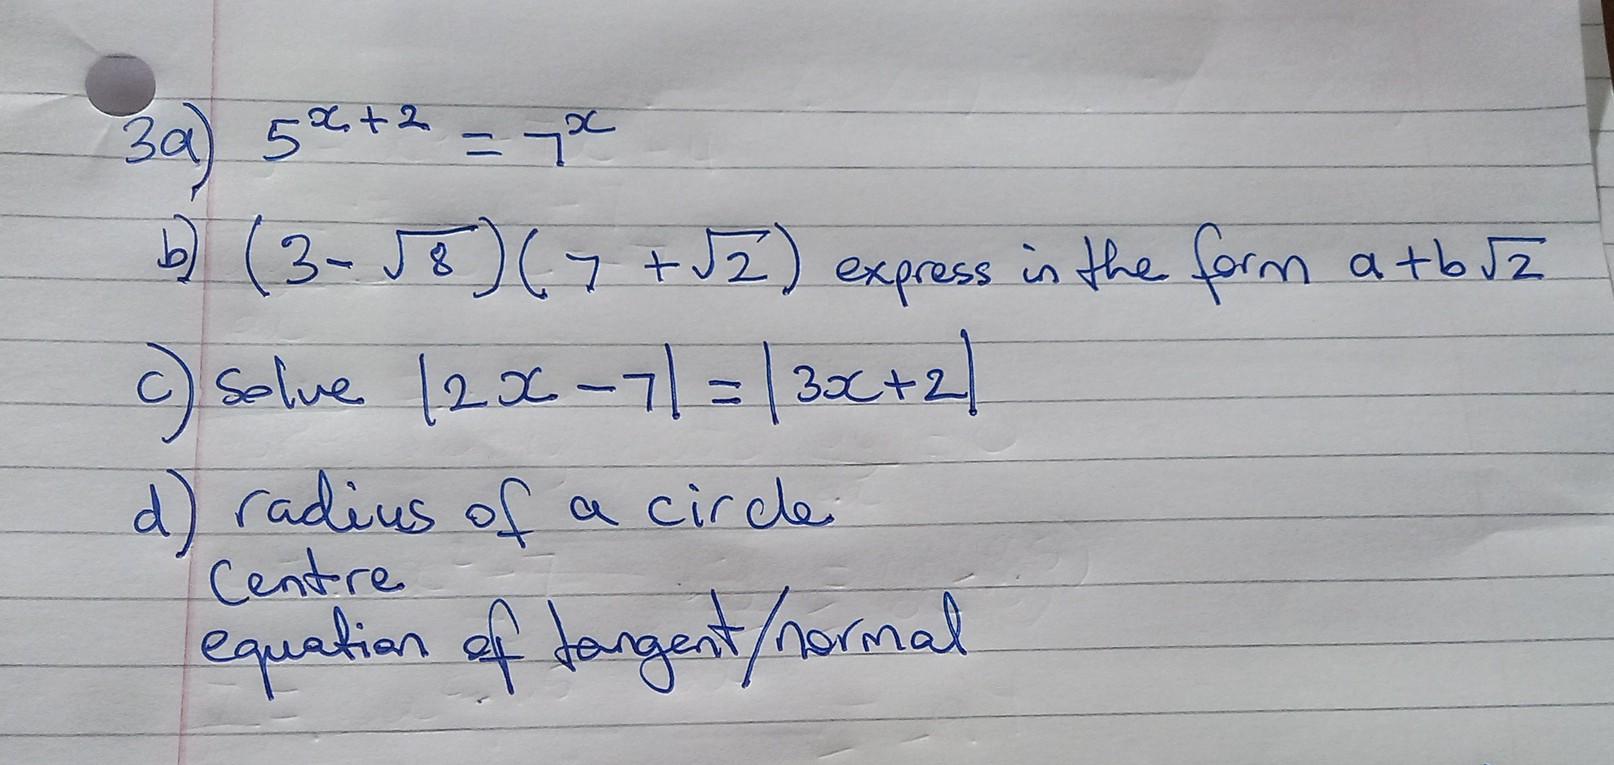 3a) 5^{x+2} = 7^x
b) (3-√8)(7+√2) express in the form a+b√2
c) Solve |2x-7| = |3x+2|
d) radius of a circle
Centre
equation of tangent/normal